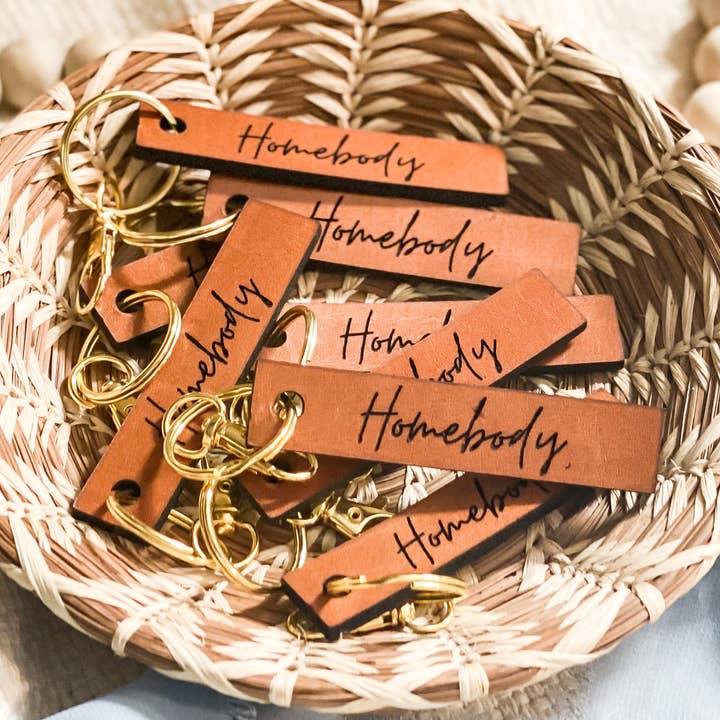 Homebody
Homebody
Homebody
Homebody
Homebody